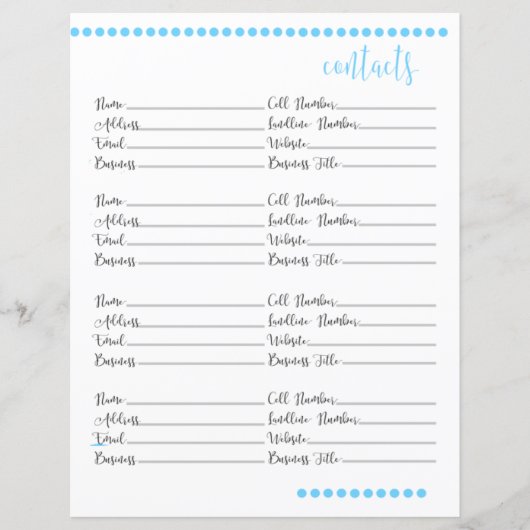 contacts
Name Cell Number
Address Landline Number
Email Website
Business Business Title
Name Cell Number
Address Landline Number
Email Website
Business Business Title
Name Cell Number
Address Landline Number
Email Website
Business Business Title
Name Cell Number
Address Landline Number
Email Website
Business Business Title